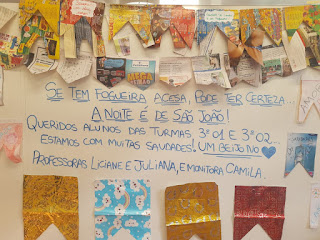 SE TEM FOGUEIRA ACESA, PODE TER CERTEZA...
A NOITE É DE SÃO JOÃO!
QUERIDOS ALUNOS DAS TURMAS 3º01 E 3º02...
ESTAMOS COM MUITAS SAUDADES! UM BEIJO NO
PROFESSORAS LICIANE E JULIANA, E MONITORA CAMILA.